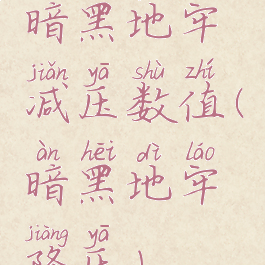 暗黑地牢
jiǎn yā shù zhí
减压数值(
àn hēi dì láo
暗黑地牢
jiàng yā
降压)